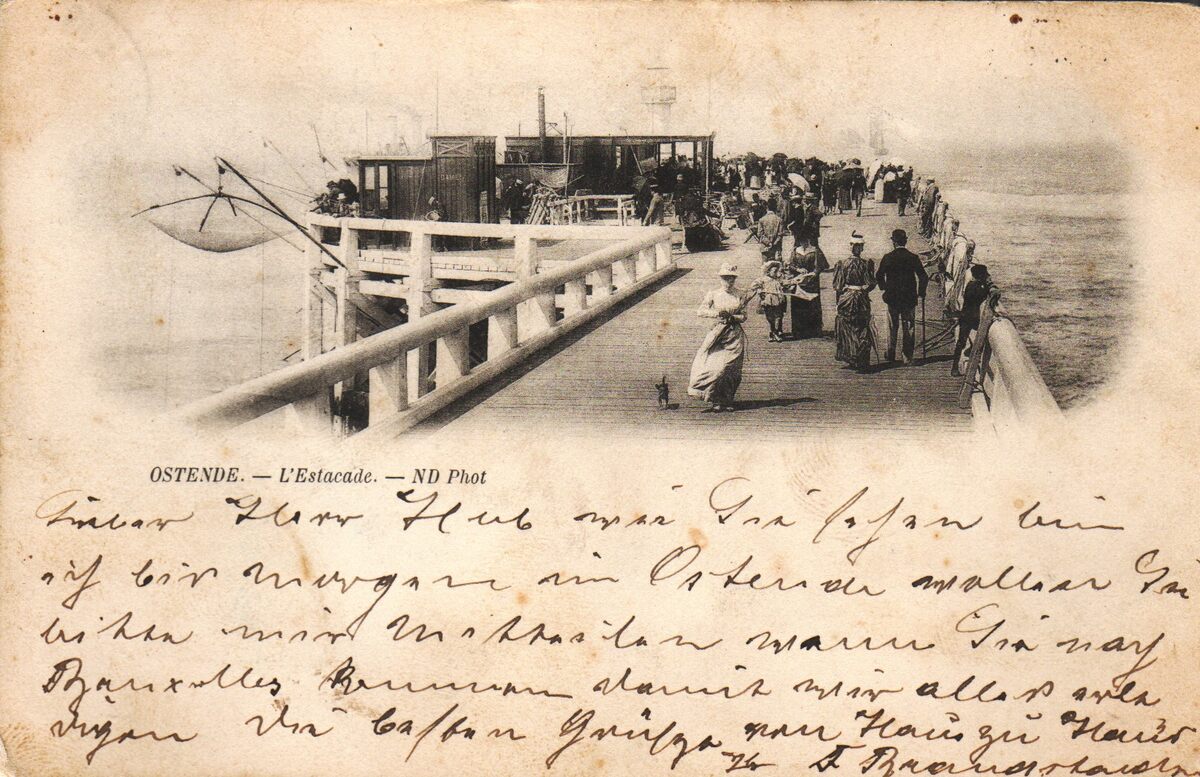 DAMES
OSTENDE. — L'Estacade. — ND Phot
Lieber Herr Hub wie Sie sehen bin
ich bis morgen in Ostende wollen Sie
bitte mir Mitteilen wann Sie nach
Bruxelles kommen damit wir alles erle
digen die besten Grüsze von Haus zu Haus